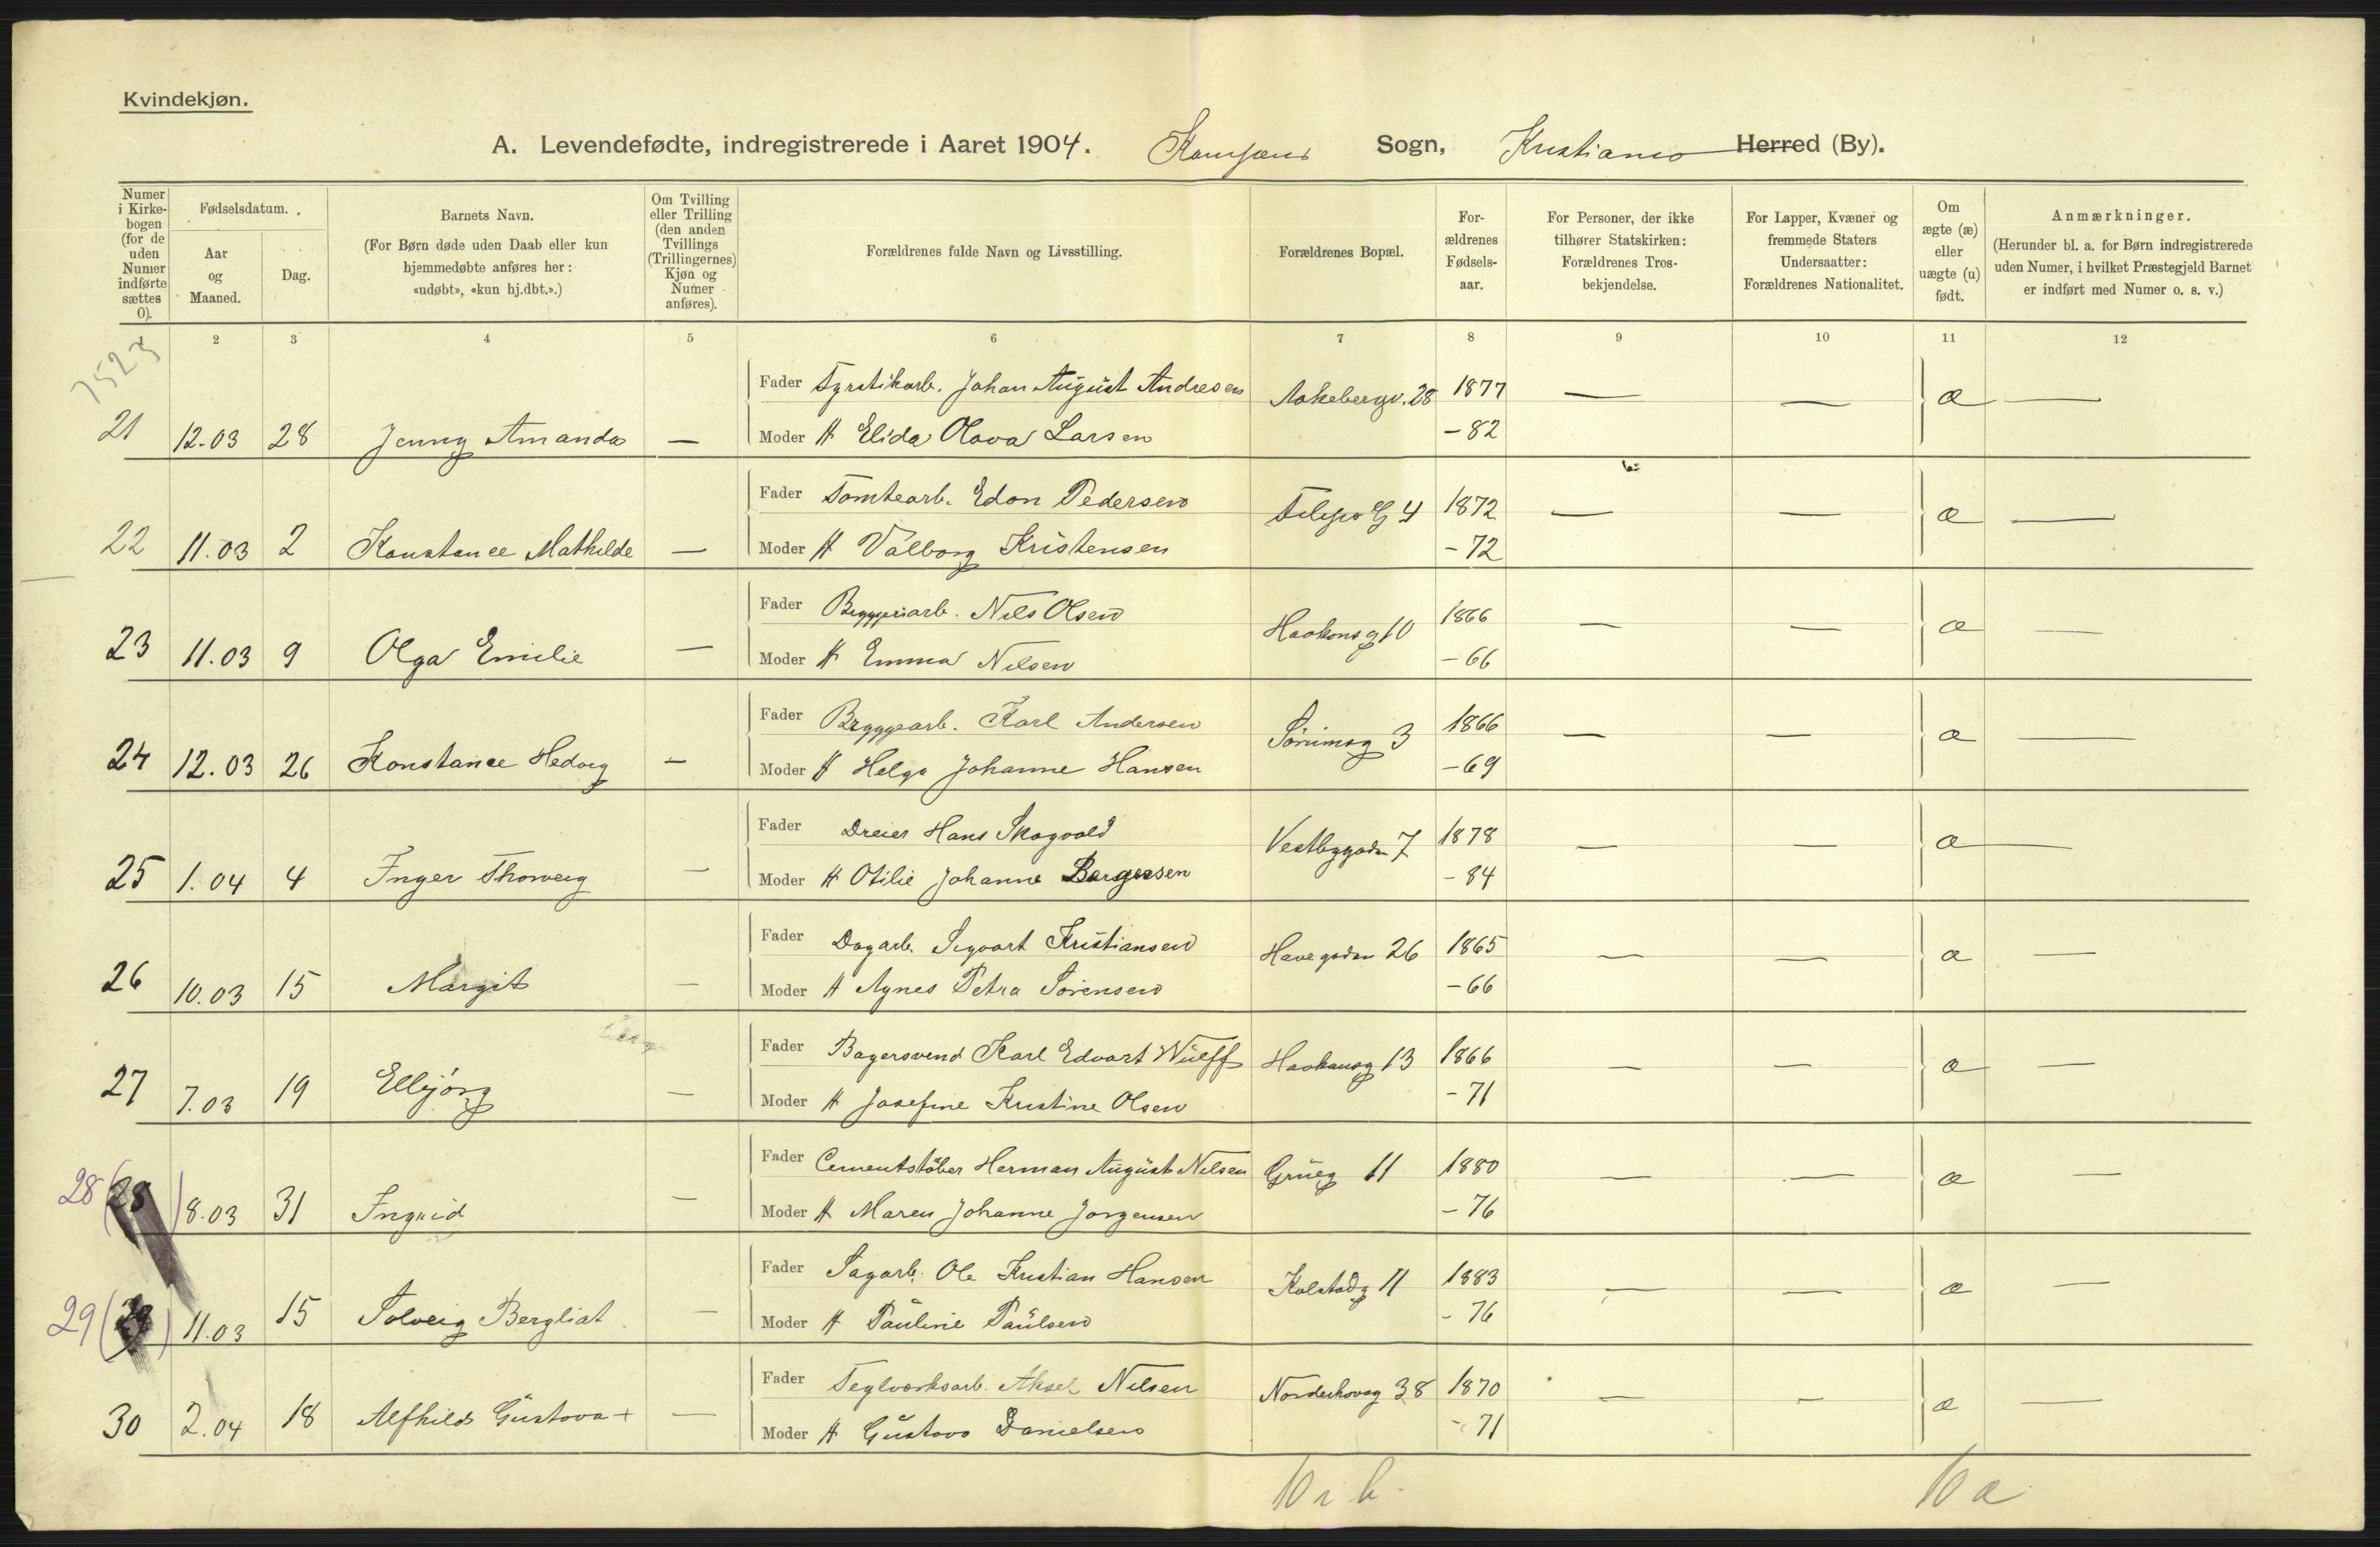 Kvindekjøn.
A. Levendefødte, indregistrerede i Aaret 1904. Kampens Sogn, Kristiania Herred (By).
Numer i Kirke-bogen (for de uden Numer indførte sættes 0).
Fødselsdatum.
Aar og Maaned.
Dag.
Barnets Navn.
(For Børn døde uden Daab eller kun hjemmedøbte anføres her: «udøbt», «kun hj.dbt.».)
Om Tvilling eller Trilling (den anden Tvillings (Trillingernes) Kjøn og Numer anføres).
Forældrenes fulde Navn og Livsstilling.
Forældrenes Bopæl.
For-ældrenes Fødsels-aar.
For Personer, der ikke tilhører Statskirken: Forældrenes Tros-bekjendelse.
For Lapper, Kvæner og fremmede Staters Undersaatter: Forældrenes Nationalitet.
Om ægte (æ) eller uægte (u) født.
Anmærkninger.
(Herunder bl. a. for Børn indregistrerede uden Numer, i hvilket Præstegjeld Barnet er indført med Numer o. s. v.)
1 2 3 4 5 6 7 8 9 10 11 12
Fader Fyrstikarb. Johan August Andresen Aakebergv. 28 1877 — — æ —
21 12.03 28 Jenny Amanda — Moder H Elida Olava Larsen - 82
Fader Tomtearb. Edon Pedersen 4 1872 — — æ —
22 11.03 2 Konstance Mathilde — Moder H Valborg Kristensen - 72
Fader Bryggeriarb. Nils Olsen Haakonsg 10 1866 — — æ —
23 11.03 9 Olga Emilie — Moder H Emma Nilsen - 66
Fader Bryggearb. Karl Andersen Sørumsg 3 1866 — — æ —
24 12.03 26 Konstance Hedvig — Moder H Helga Johanne Hansen - 69
Fader Dreier Hans Skogvold Vestbygaden 7 1878 — — æ —
25 1.04 4 Inger Thorveig — Moder H Otilie Johanne Borgersen - 84
Fader Dagarb. Sigvart Kristiansen Havegaden 26 1865 — — æ —
26 10.03 15 Margit — Moder H Agnes Petra Sørensen - 66
Fader Bagersvend Karl Edvart Wulff Haakonsg 13 1866 — — æ —
27 7.03 19 Elbjørg — Moder H Josefine Kristine Olsen - 71
Fader Cementstøber Herman August Nilsen Grüeg 11 1880 — — æ —
28 (28) 8.03 31 Ingrid — Moder H Maren Johanne Jørgensen - 76
Fader Sagarb. Ole Kristian Hansen Kolstadg 11 1883 — — æ —
29 (29) 11.03 15 Solveig Bergliat — Moder H Pauline Paulsen - 76
Fader Teglværksarb. Aksel Nilsen Norderhovsg 38 1870 — — æ —
30 2.04 18 Alfhild Gustava + — Moder H Gustava Danielsen - 71
10 i b. 10 a